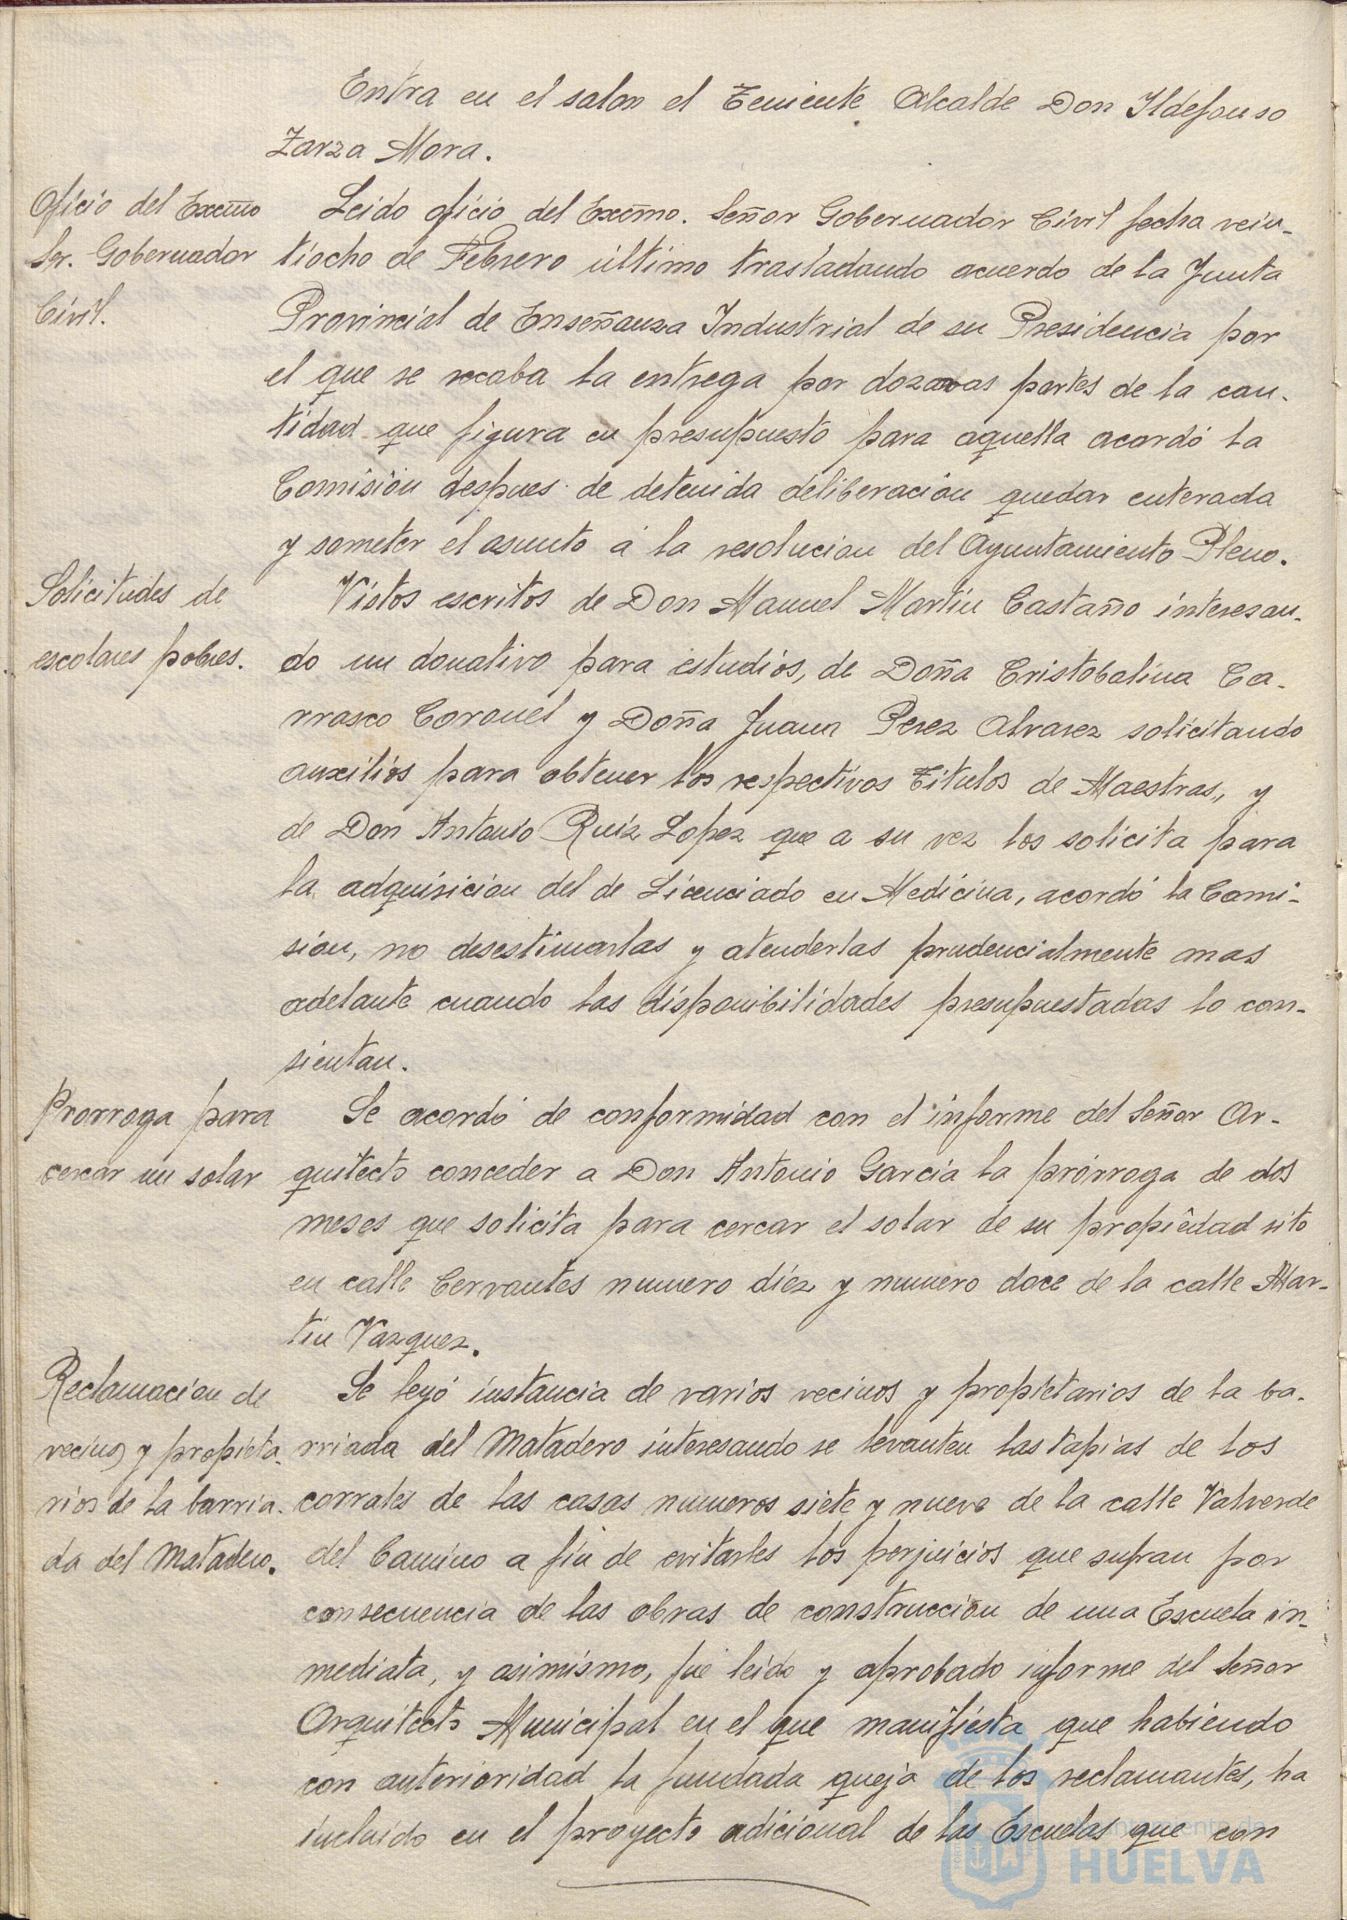 Entra en el salon el Teniente Alcalde Don Ildefonso
Zarza Mora.
Oficio del Excmo
Sr. Gobernador
Civil.
Leido oficio del Excmo. Señor Gobernador Civil fecha vein-
tiocho de Febrero último trasladando acuerdo de la Junta
Provincial de Enseñanza Industrial de su Presidencia por
el que se recaba la entrega por dozavas partes de la can-
tidad que figura en presupuesto para aquella acordó la
Comisión despues de detenida deliberacion quedar enterada
y someter el asunto á la resolucion del Ayuntamiento Pleno.
Solicitudes de
escolares pobres.
Vistos escritos de Don Manuel Martin Castaño interesan-
do un donativo para estudios, de Doña Cristobalina Ca-
rrasco Coronel y Doña Juana Perez Alvarez solicitando
auxilios para obtener los respectivos Titulos de Maestras, y
de Don Antonio Ruiz Lopez que a su vez los solicita para
la adquisicion del de Licenciado en Medicina, acordó la Comi-
sión, no desestimarlas y atenderlas prudencialmente mas
adelante cuando las disponibilidades presupuestadas lo con-
sientan.
Prorroga para
cercar un solar
Se acordó de conformidad con el informe del Señor Ar-
quitecto conceder a Don Antonio Garcia la prórroga de dos
meses que solicita para cercar el solar de su propiedad sito
en calle Cervantes numero diez y numero doce de la calle Mar-
tin Vazquez.
Reclamacion de
vecinos y propieta-
rios de la barria-
da del Matadero.
Se leyó instancia de varios vecinos y propietarios de la ba-
rriada del Matadero interesando se levanten las tapias de los
corrales de las casas numeros siete y nueve de la calle Valverde
del Camino a fin de evitarles los perjuicios que sufran por
consecuencia de las obras de construccion de una Escuela in-
mediata, y asimismo, fué leido y aprobado informe del Señor
Arquitecto Municipal en el que manifiesta que habiendo
con anterioridad la fundada queja de los reclamantes, ha
incluido en el proyecto adicional de las Escuelas que con
Ayuntamiento de
HUELVA